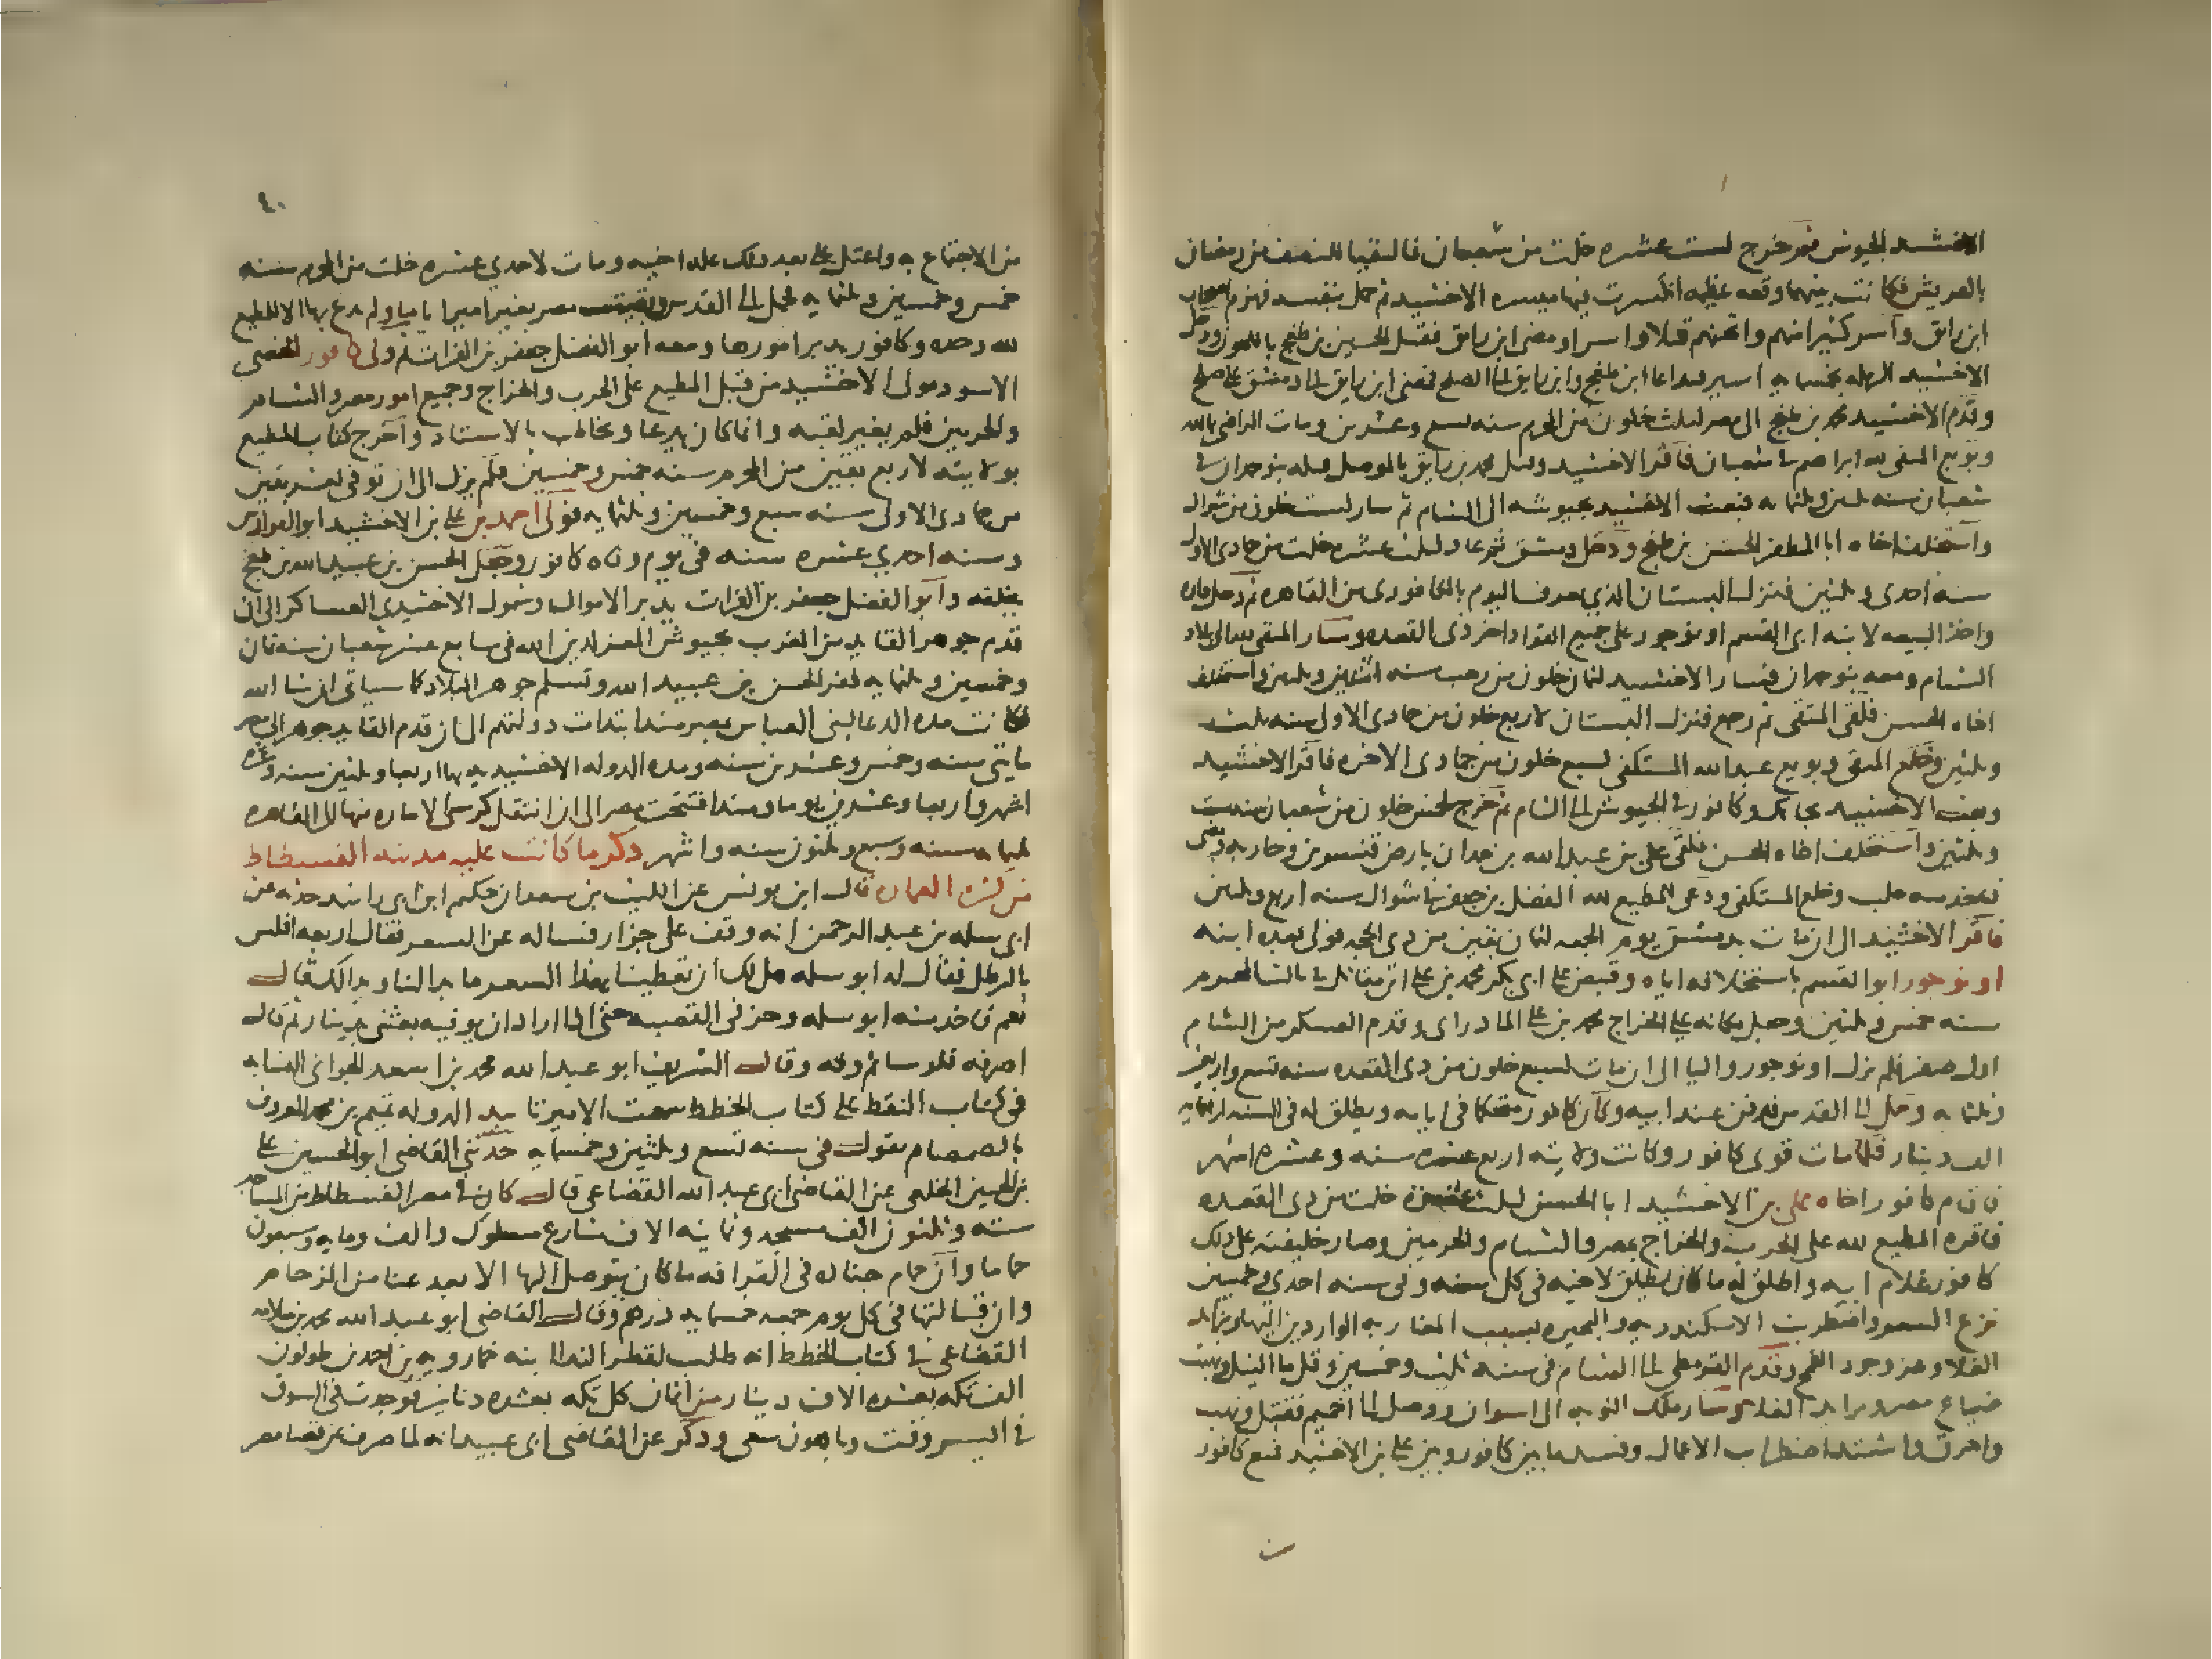 الاخشيد الجيوش ثم خرج لست عشره خلت من شعبان فالتقيا للنصف من رمضان
بالعريش فكانت بينهما وقعه عظيمه انكسرت فيها ميسره الاخشيد ثم حمل بنفسه فهزم اصحاب
ابن رائق واسر كثيرا منهم واثخنهم قتلا واسرا ومضى ابن رائق فقتل الحسين بن طغج باللجون ودخل
الاخشيد الرمله بخمسمايه اسير فتداعا ابن طغج وابن رايق الى الصلح فمضى ابن رايق الى دمشق على صلح
وقدم الاخشيد محمد بن طغج الى مصر لثلث خلون من المحرم سنه تسع وعشرين ومات الراضى بالله
وبويع المتقى لله ابراهيم في شعبان فاقر الاخشيد وقتل محمد بن رايق بالموصل قتله بنو حمدان في
شعبان سنه ثلثين وثلثمايه فبعث الاخشيد بجيوشه الى الشام ثم سار لست خلون من شوال
واستخلف اخاه ابا المظفر الحسن بن طغج ودخل دمشق ثم عاد لثلث عشره خلت من جمادى الاولى
سنه احدى وثلثين فنزل البستان الذي يعرف اليوم بالكافورى من القاهره ثم دخل داره
واخذ البيعه لابنه ابى القسم اونوجور على جميع القواد اخر ذى القعده وسار المتقى لله الى بلاد
الشام ومعه بنو حمدان فسار الاخشيد لثمان خلون من رجب سنه اثنتين وثلثين واستخلف
اخاه الحسن فلقى المتقى ثم رجع فنزل البستان لاربع خلون من جمادى الاولى سنه ثلث
وثلثين وخلع المتقى وبويع عبد الله المستكفى لسبع خلون من جمادى الاخره فاقر الاخشيد
وبعث الاخشيد بحانك وكافور في الجيوش الى الشام ثم خرج لخمس خلون من شعبان سنه ست
وثلثين واستخلف اخاه الحسن فلقى على بن عبد الله بن حمدان بارض قنسرين وحاربه ومضى
فاخذ منه حلب وخلع المستكفى ودعى للمطيع لله الفضل بن جعفر في شوال سنه اربع وثلثين
فاقر الاخشيد الى ان مات بدمشق يوم الجمعه لثمان بقين من ذى الحجه فولى بعده ابنه
اونوجور ابو القسم باستخلافه اياه وقبض على ابى بكر محمد بن على ابن مقاتل في ثالث المحرم
سنه خمس وثلثين وجعل مكانه على الخراج محمد بن على المادراى وقدم العسكر من الشام
اول صفر فلم يزل اونوجور واليا الى ان مات لسبع خلون من ذى القعده سنه تسع واربعين
وثلثمايه وحمل الى القدس فدفن عند ابيه وكان كافور متحكما فى ايامه ويطلق له فى السنه اربعمايه
الف دينار فلما مات قوى كافور وكانت ولايته اربع عشره سنه وعشره اشهر
فاقام كافور اخاه على بن الاخشيد ابا الحسن لثلث عشره خلت من ذى القعده
فاقره المطيع لله على الحرب والخراج بمصر والشام والحرمين وصار خليفته على ذلك
كافور غلام ابيه واطلق له ما كان يطلق لاخيه فى كل سنه وفى سنه احدى وخمسين
نزع السعر واضطربت الاسكندريه والبحيره بسبب المغاربه الواردين اليها وتزايد
الغلا وعز وجود القمح وقدم القرمطى الى الشام فى سنه ثلث وخمسين وقل ما النيل ونهبت
ضياع مصر وتزايد الغلا وسار ملك النوبه الى اسوان ووصل الى اخميم فقتل ونهب
واحرق واشتد اضطراب الاعمال وفسد ما بين كافور وبين على بن الاخشيد فمنع كافور
٤٠
من الاجتماع به واعتل على بعد ذلك عله اخيه ومات لاحدى عشره خلت من المحرم سنه
خمس وخمسين وثلثمايه فحمل الى القدس وبقيت مصر بغير امير اياما ولم يدع بها الا للمطيع
لله وحده وكافور يدبر امورها ومعه ابو الفضل جعفر بن الفرات ثم ولى كافور الخصى
الاسود مولى الاخشيد من قبل المطيع على الحرب والخراج وجميع امور مصر والشام
والحرمين فلم يغير لقبه وانما كان يدعا ويخاطب بالاستاد واخرج كتاب المطيع
بولايته لاربع بقين من المحرم سنه خمس وخمسين فلم يزل الى ان توفى لعشر بقين
من جمادى الاولى سنه سبع وخمسين وثلثمايه فولى احمد بن على بن الاخشيد ابو الفوارس
وسنه احدى عشره سنه فى يوم وفاه كافور وجعل الحسن بن عبيد الله بن طغج
يخلفه وابو الفضل جعفر بن الفرات يدبر الاموال وشمول الاخشيدى العساكر الى ان
قدم جوهر القايد من المغرب بجيوش المعز لدين الله فى سابع عشر شعبان سنه ثمان
وخمسين وثلثمايه ففر الحسن بن عبيد الله وتسلم جوهر البلاد كما سياتى ان شا الله
فكانت مده الدعا لبنى العباس بمصر منذ ابتدات دولتهم الى ان قدم القايد جوهر الى مصر
مايتى سنه وخمس وعشرين سنه ومده الدوله الاخشيديه بها اربعا وثلثين سنه وعشره
اشهر واربعا وعشرين يوما ومنذ افتتحت مصر الى ان انتقل كرسى الاماره منها الى القاهره
ثلثمايه سنه وسبع وثلثون سنه واشهر ذكر ما كانت عليه مدينه الفسطاط
من كثره العماره قال ابن يونس عن الليث بن سعد ان حكيم ابن ابى راشد حدثه عن
ابى سلمه بن عبد الرحمن انه وقف على جزار فساله عن السعر فقال اربعه افلس
بالرطل فقال له ابو سلمه هل لك ان تعطينا بهذا السعر ما بدا لنا وبدا لك قال
نعم فاخذ منه ابو سلمه وحز فى القصبه حتى اذا اراد ان يوفيه بعثنى بدينار ثم قال
اصرفه فلوسا ثم وفه وقال الشريف ابو عبد الله محمد بن اسعد الجوانى النسابه
فى كتاب النقط على كتاب الخطط سمعت الامير تايد الدوله تميم بن محمد المعروف
بالصمصام يقول فى سنه تسع وثلثين وخمسمايه حدثنى القاضى ابو الحسين على
بن الحسين الخلعى عن القاضى ابى عبد الله القضاعى قال كان في مصر الفسطاط من المساجد
سته وثلثون الف مسجد وثمانيه الاف شارع مسلوك والف ومايه وسبعون
حماما وان حمام جناده فى القرافه ما كان يتوصل اليها الا بعد عنا من الزحام
وان قبالتها فى كل يوم جمعه خمسمايه درهم وقال القاضى ابو عبد الله محمد بن سلامه
القضاعى في كتاب الخطط انه طلب لقطر الندا ابنه خمارويه بن احمد بن طولون
الف تكه بعشره الاف دينار من اثمان كل تكه بعشره دنانير فوجدت فى السوق
في ايسر وقت وباهون سعى وذكر عن القاضى ابى عبيد انه لما صرف عن قضا مصر